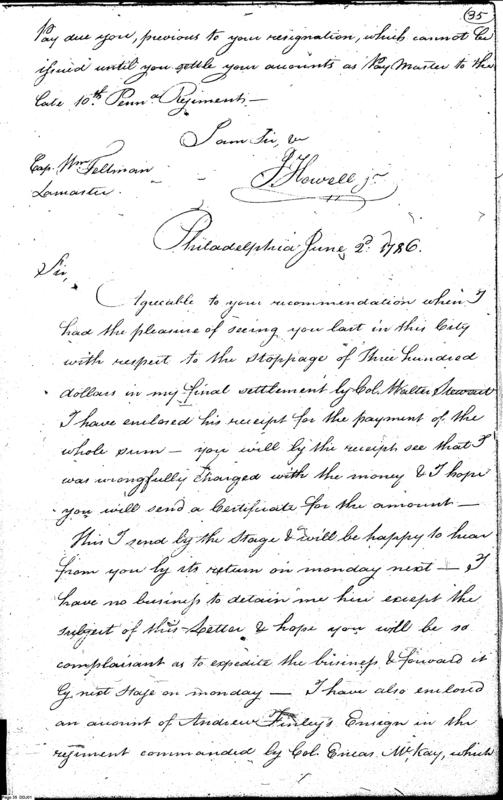 35
Pay due you, previous to your resignation, which cannot be
issued until you settle your accounts as Pay Master to the
late 10th Penna Regiment —
I am Sir, &
J Howell jr
Cap. Wm Feltman
Lancaster.
Philadelphia June 2d 1786.
Sir,
Agreeable to your recommendation when I
had the pleasure of seeing you last in this City
with respect to the Stoppage of Three hundred
dollars in my final settlement by Col. Walter Stewart
I have enclosed his receipt for the payment of the
whole sum — you will by the receipt see that I
was wrongfully charged with the money & I hope
you will send a Certificate for the amount —
This I send by the Stage & will be happy to hear
from you by its return on monday next — I
have no business to detain me here except the
subject of this Letter & hope you will be so
complaisant as to expedite the business & forward it
by next Stage on monday — I have also enclosed
an account of Andrew Finley's Ensign in the
regiment commanded by Col. Eneas McKay, which
Page 35